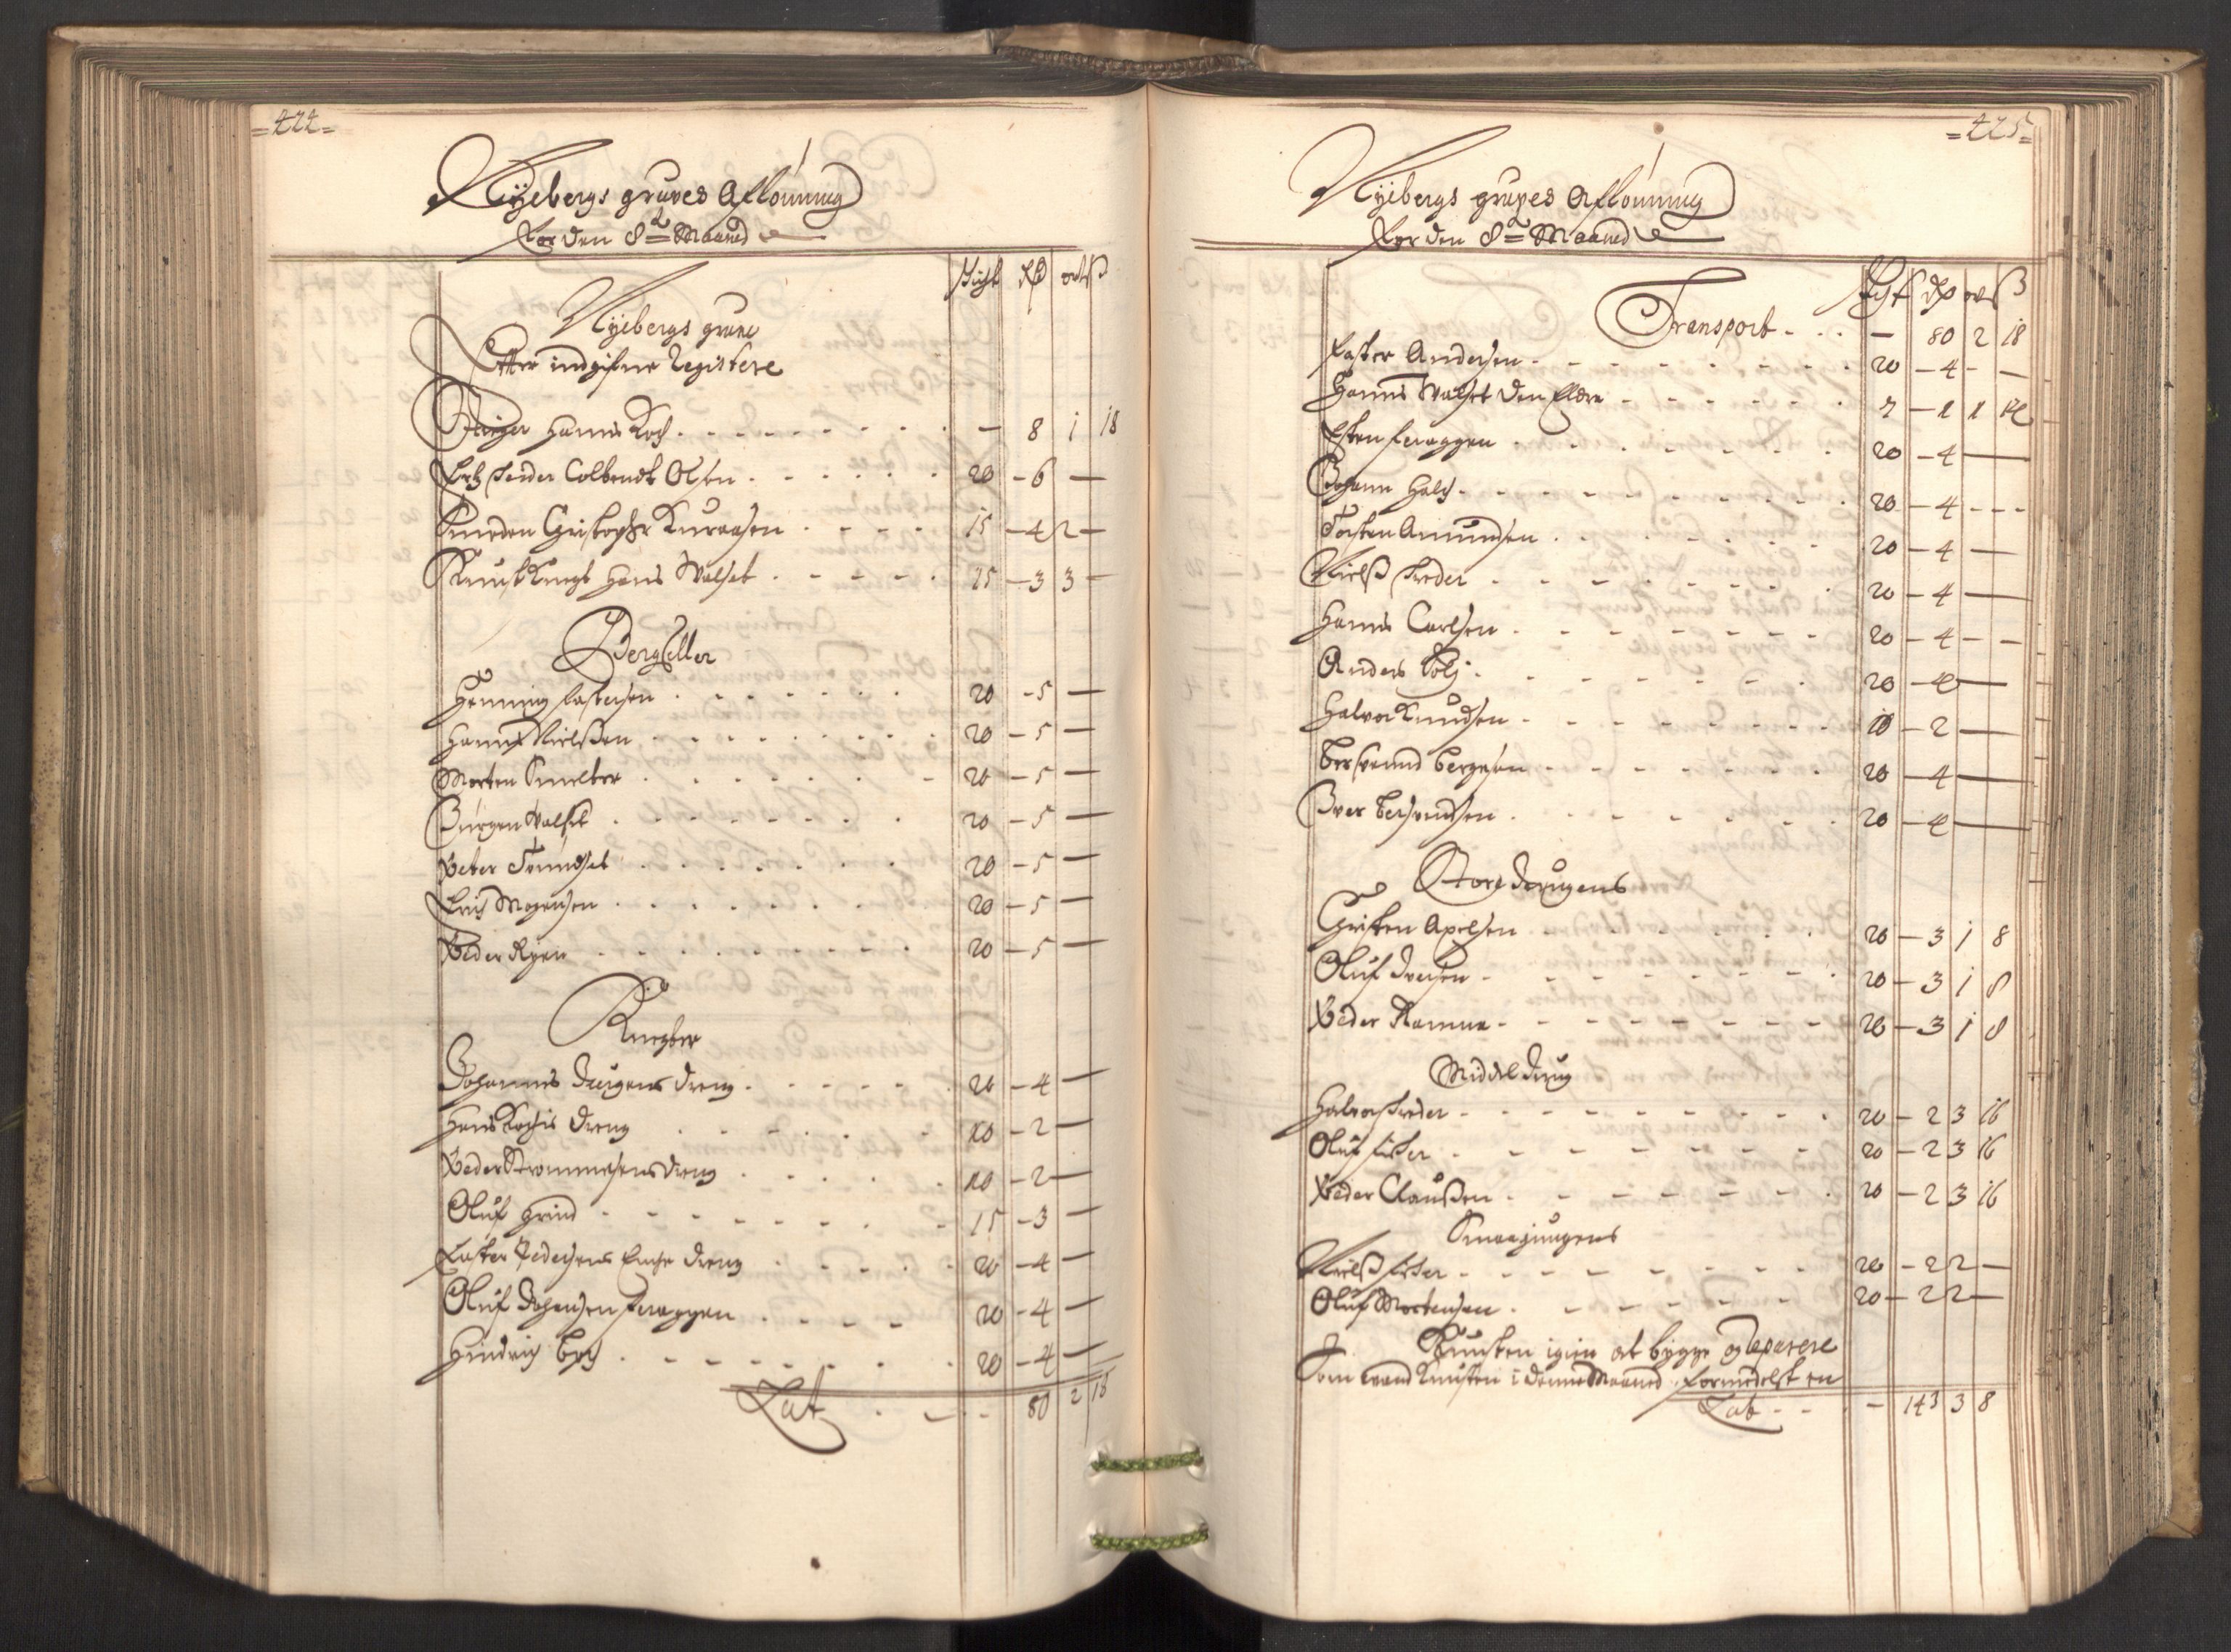 =424=
Nyebergs gruves Aflönning
For den 8de Maaned
Nyebergs grube
Efter indgifne Registere
Skict Rd ort ß
Stiger Hanns Koch - 8 1 18
Ertz Skeder Colbendt Olsen 20 - 6 -
Smeden Christopher Knudsen 15 - 4 2 -
Kunst Knegt Hans Walset 15 - 3 3 -
Bergseller
Henning Lastersen 20 - 5 -
Hanns Nielßen 20 - 5 -
Morten Smelter 20 - 5 -
Jürgen Walset 20 - 5 -
Peter Trundset 20 - 5 -
Erich Mogensen 20 - 5 -
Peder Ryen 20 - 5 -
Knegter
Johannes Jürgens dreng 20 - 4 -
Hans Kochis dreng 10 - 2 -
Peder Strommesens dreng 10 - 2 -
Oluf Grind 15 - 3 -
Laster Pedersens dreng 20 - 4 -
Oluf Johansen Feraggen 20 - 4 -
Hindrich Berg 20 - 4 -
Lat - 80 2 18
=425=
Nyebergs gruves Aflönning
For den 8de Maaned
Skict Rd ort ß
Transport - 80 2 18
Laster Andersen 20 - 4 - -
Hanns Walset den Eldre 7 - 1 1 14
Esten Feraggen 20 - 4 -
Johann Falch 20 - 4 - - -
Torsten Amundsen 20 - 4 -
Nielß Skreder 20 - 4 -
Hanns Carlsen 20 - 4 - -
Anders Volj 20 - 4 -
Halvor Knudsen 10 - 2 -
Bersvennd Bergesen 20 - 4 -
Iver Bersvendsen 20 - 4 -
Store drengens
Christen Axelsen 20 - 3 1 8
Oluf Iversen 20 - 3 1 8
Peder Ramme 20 - 3 1 8
Middel dreng
Halvor Skreder 20 - 2 3 16
Oluf Fisker 20 - 2 3 16
Peder Claußen 20 - 2 3 16
Smaajungens
Nielß Fisker 20 - 2 2 -
Oluf Mortensen 20 - 2 2 -
Kunsten igien at bygge og Reparere
Som wand Kunsten i denne Maaned formedelst en
Lat - 143 3 8